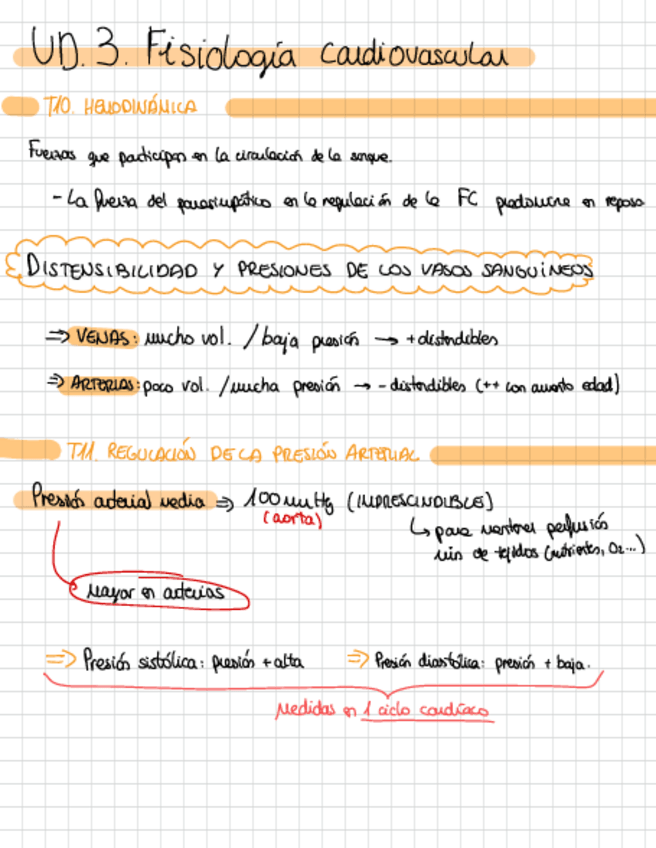 UD.3. Fisiología cardiovascular
T10. HEMODINÁMICA
Fuerzas que participan en la circulación de la sangre.
- La fuerza del parasimpático en la regulación de la FC predomina en reposo
DISTENSIBILIDAD Y PRESIONES DE LOS VASOS SANGUÍNEOS
⇒ VENAS: mucho vol. / baja presión → + distendibles
⇒ ARTERIAS: poco vol. / mucha presión → - distendibles (++ con aumento edad)
T11. REGULACIÓN DE LA PRESIÓN ARTERIAL
Presión arterial media ⇒ 100 mmHg (IMPRESCINDIBLE)
(aorta)
↳ para mantener perfusión
min de tejidos (nutrientes, O2...)
Mayor en arterias
⇒ Presión sistólica: presión + alta
⇒ Presión diastólica: presión + baja.
Medidas en 1 ciclo cardíaco